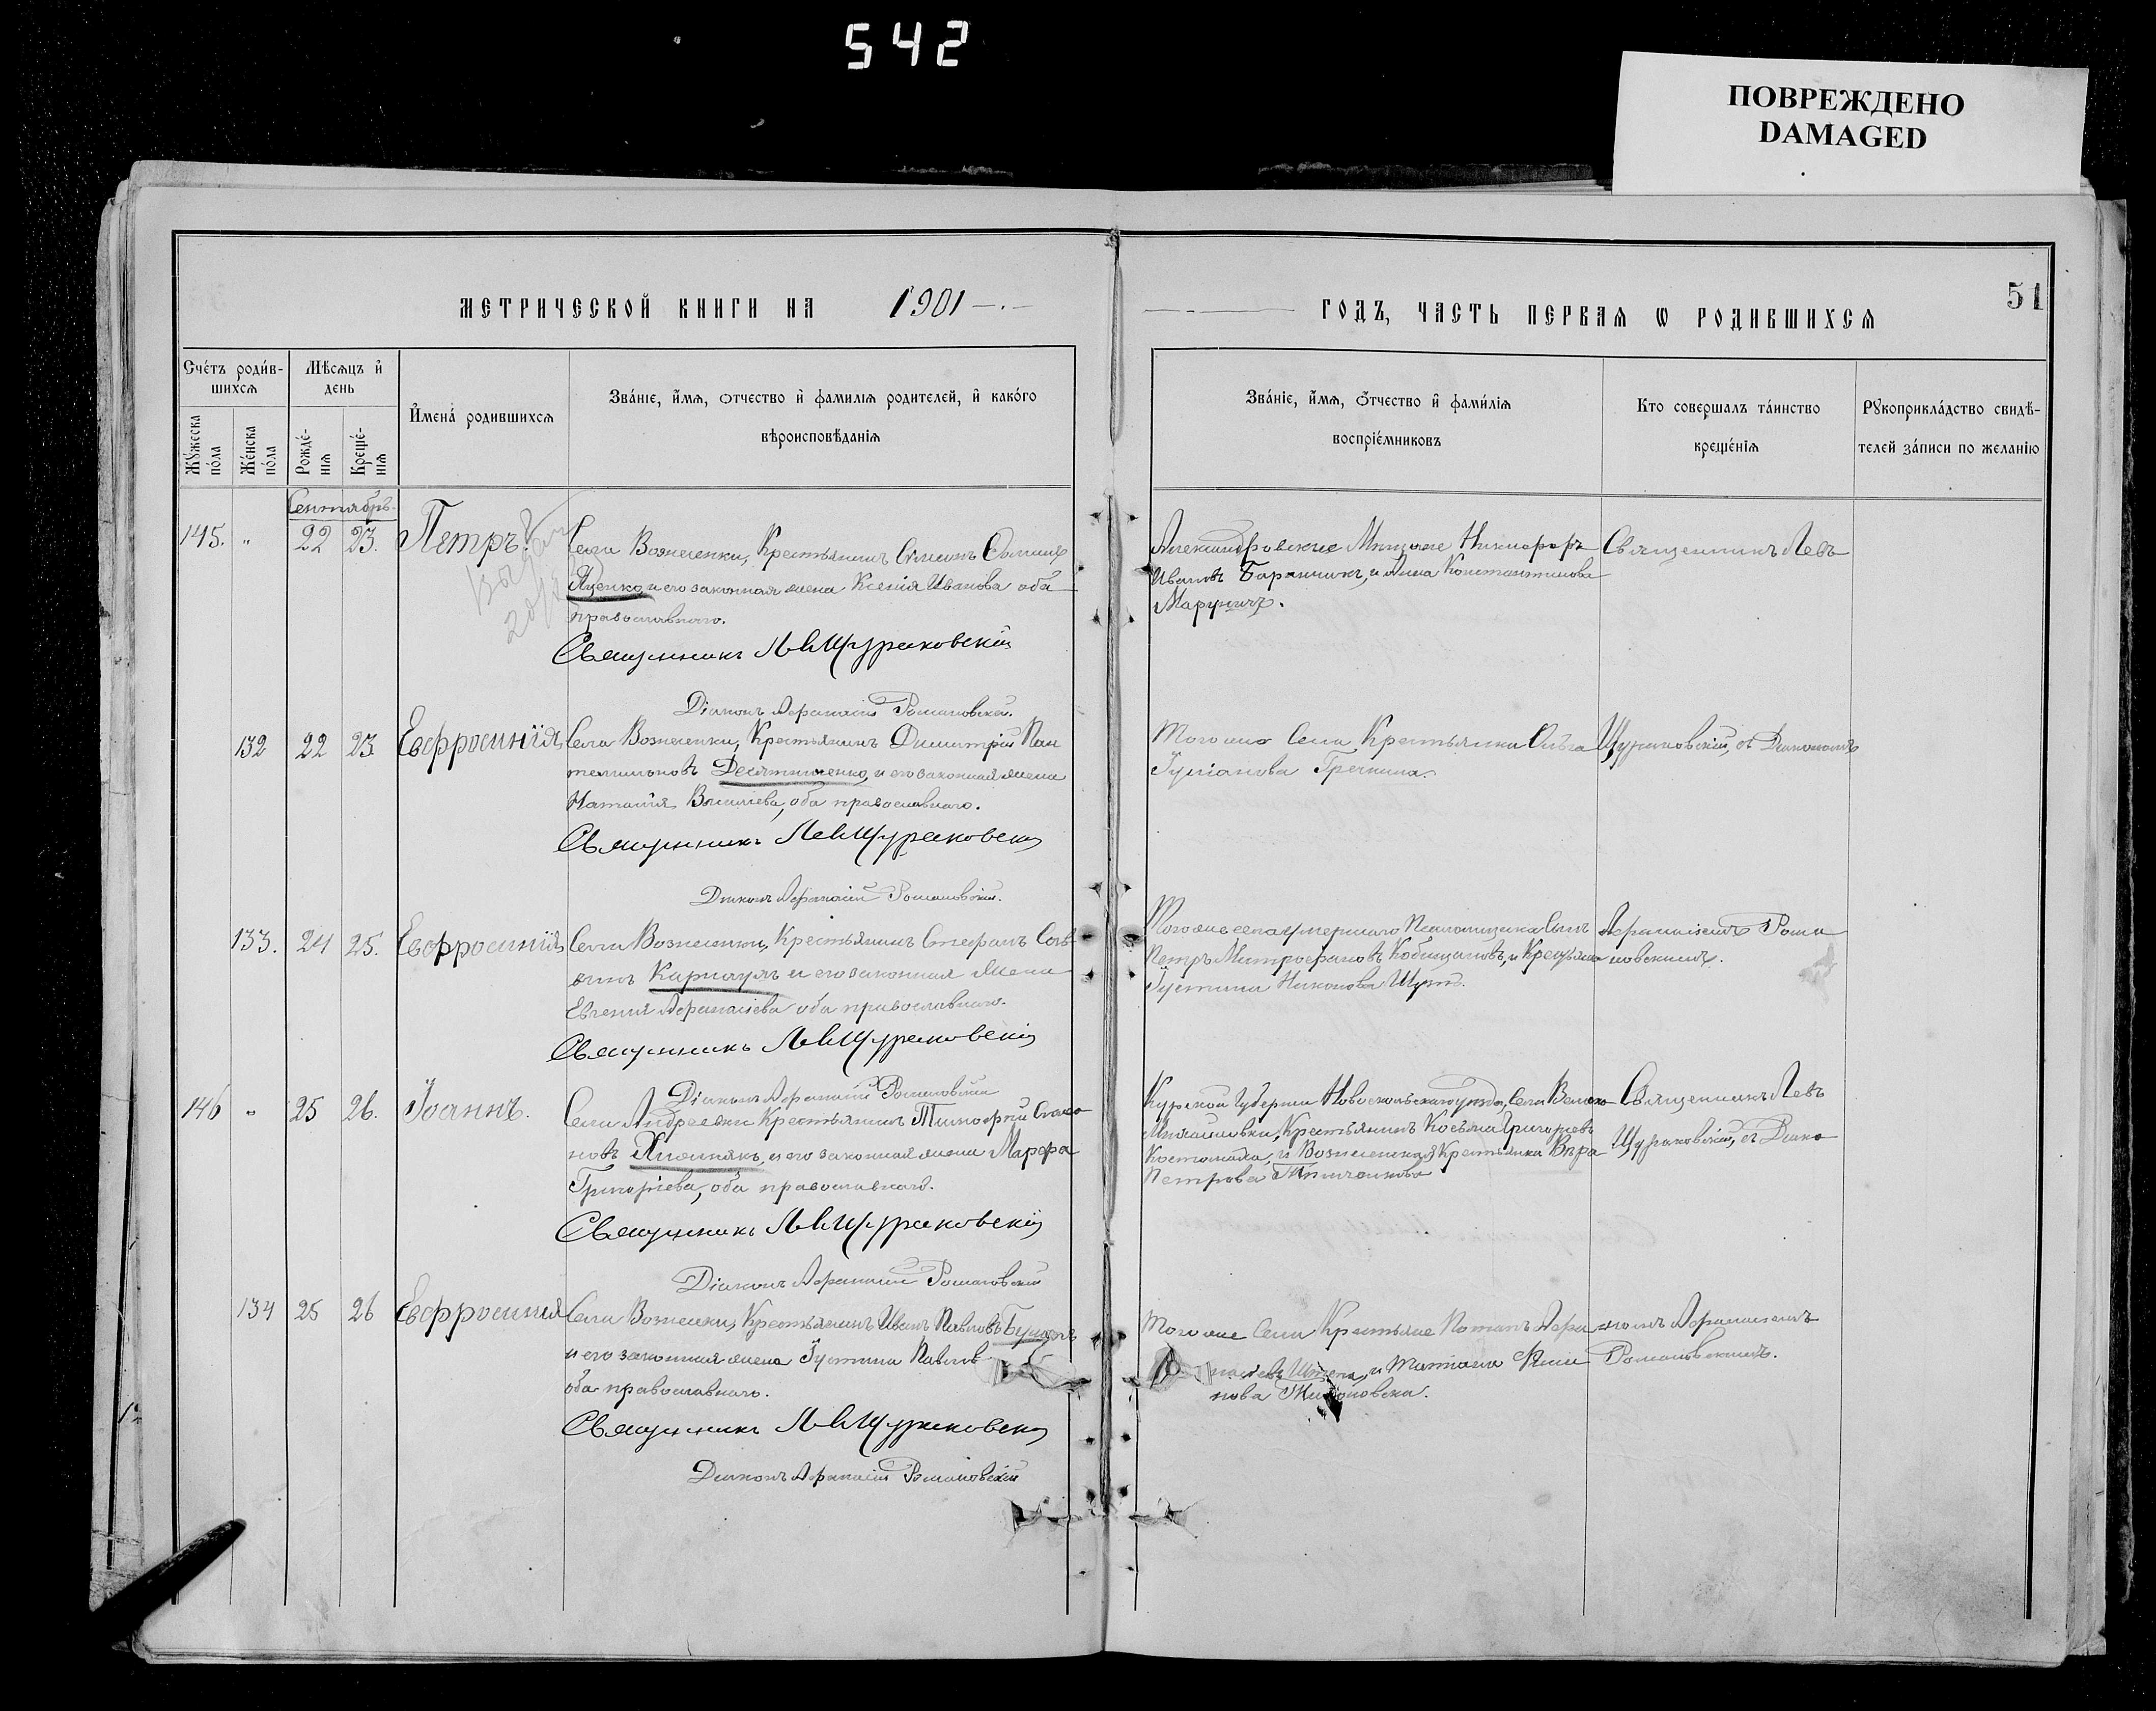 542
ПОВРЕЖДЕНО
DAMAGED
МЕТРИЧЕСКОЙ КНИГИ НА 1901
ГОДЪ, ЧАСТЬ ПЕРВАЯ Ѡ РОДИВШИХСЯ
51
Счетъ родив-
шихся
Мѣсяцъ и
день
Имена родившихся
Званіе, имя, отчество и фамилія родителей, и какого
вѣроисповѣданія
Мужеска
пола
Женска
пола
Рожде-
нія
Креще-
нія
Званіе, имя, отчество и фамилія
воспріемниковъ
Кто совершалъ таинство
крещенія
Рукоприкладство свидѣ-
телей записи по желанію
Сентябрь
145. " 22 23. Петръ.
Села Вознесенки, Крестьянинъ
Яценко, и его законная жена Ксенія Иванова оба
православнаго.
Священникъ Лев Щураковскій
Діаконъ Афанасій Романовскій.
Александровские Мещане Никифоръ
Ивановъ Баранчикъ, и Анна Константинова
Маруничъ.
Священникъ Левъ
132 22 23 Евфросинія
Села Вознесенки, Крестьянинъ Димитрій Пан
телимоновъ Десятниченко, и его законная жена
Наталія Васильева, оба православнаго.
Священникъ Лев Щураковскій
Діаконъ Афанасій Романовскій.
Того же Села Крестьянка Ольга
Гречкина.
Щураковскій, съ Діакономъ
133. 24 25. Евфросинія
Села Вознесенки, Крестьянинъ Стефанъ Сав
винъ Карнаухъ и его законная жена
Евгенія Афанасіева оба православнаго.
Священникъ Лев Щураковскій
Діаконъ Афанасій Романовскій
Того же села умершаго Псаломщика Сынъ
Петръ Митрофановъ и Крестьян
Іустина Никонова
Афанасіемъ Рома
новскимъ.
146 " 25 26. Іоаннъ.
Села Андреевки Крестьянинъ Тимофей Симо
новъ и его законная жена Марфа
Григоріева, оба православнаго.
Священникъ Лев Щураковскій
Діаконъ Афанасій Романовскій
Курской Губерніи Новооскольскаго уезда, Села Велико
Михайловки, Крестьянинъ Косьма Григорьевъ
и Вознесенская Крестьянка Вера
Петрова
Священникъ Левъ
Щураковскій, съ Діако
134 25 26 Евфросинія
Села Вознесенки, Крестьянинъ Иванъ Павловъ
и его законная жена Іустина Павлов
оба православнаго.
Священникъ Лев Щураковскій
Діаконъ Афанасій Романовскій
Того же Села Крестьяне Потапъ Афа
и Татіана
нова
номъ Афанасіемъ
Романовскимъ.